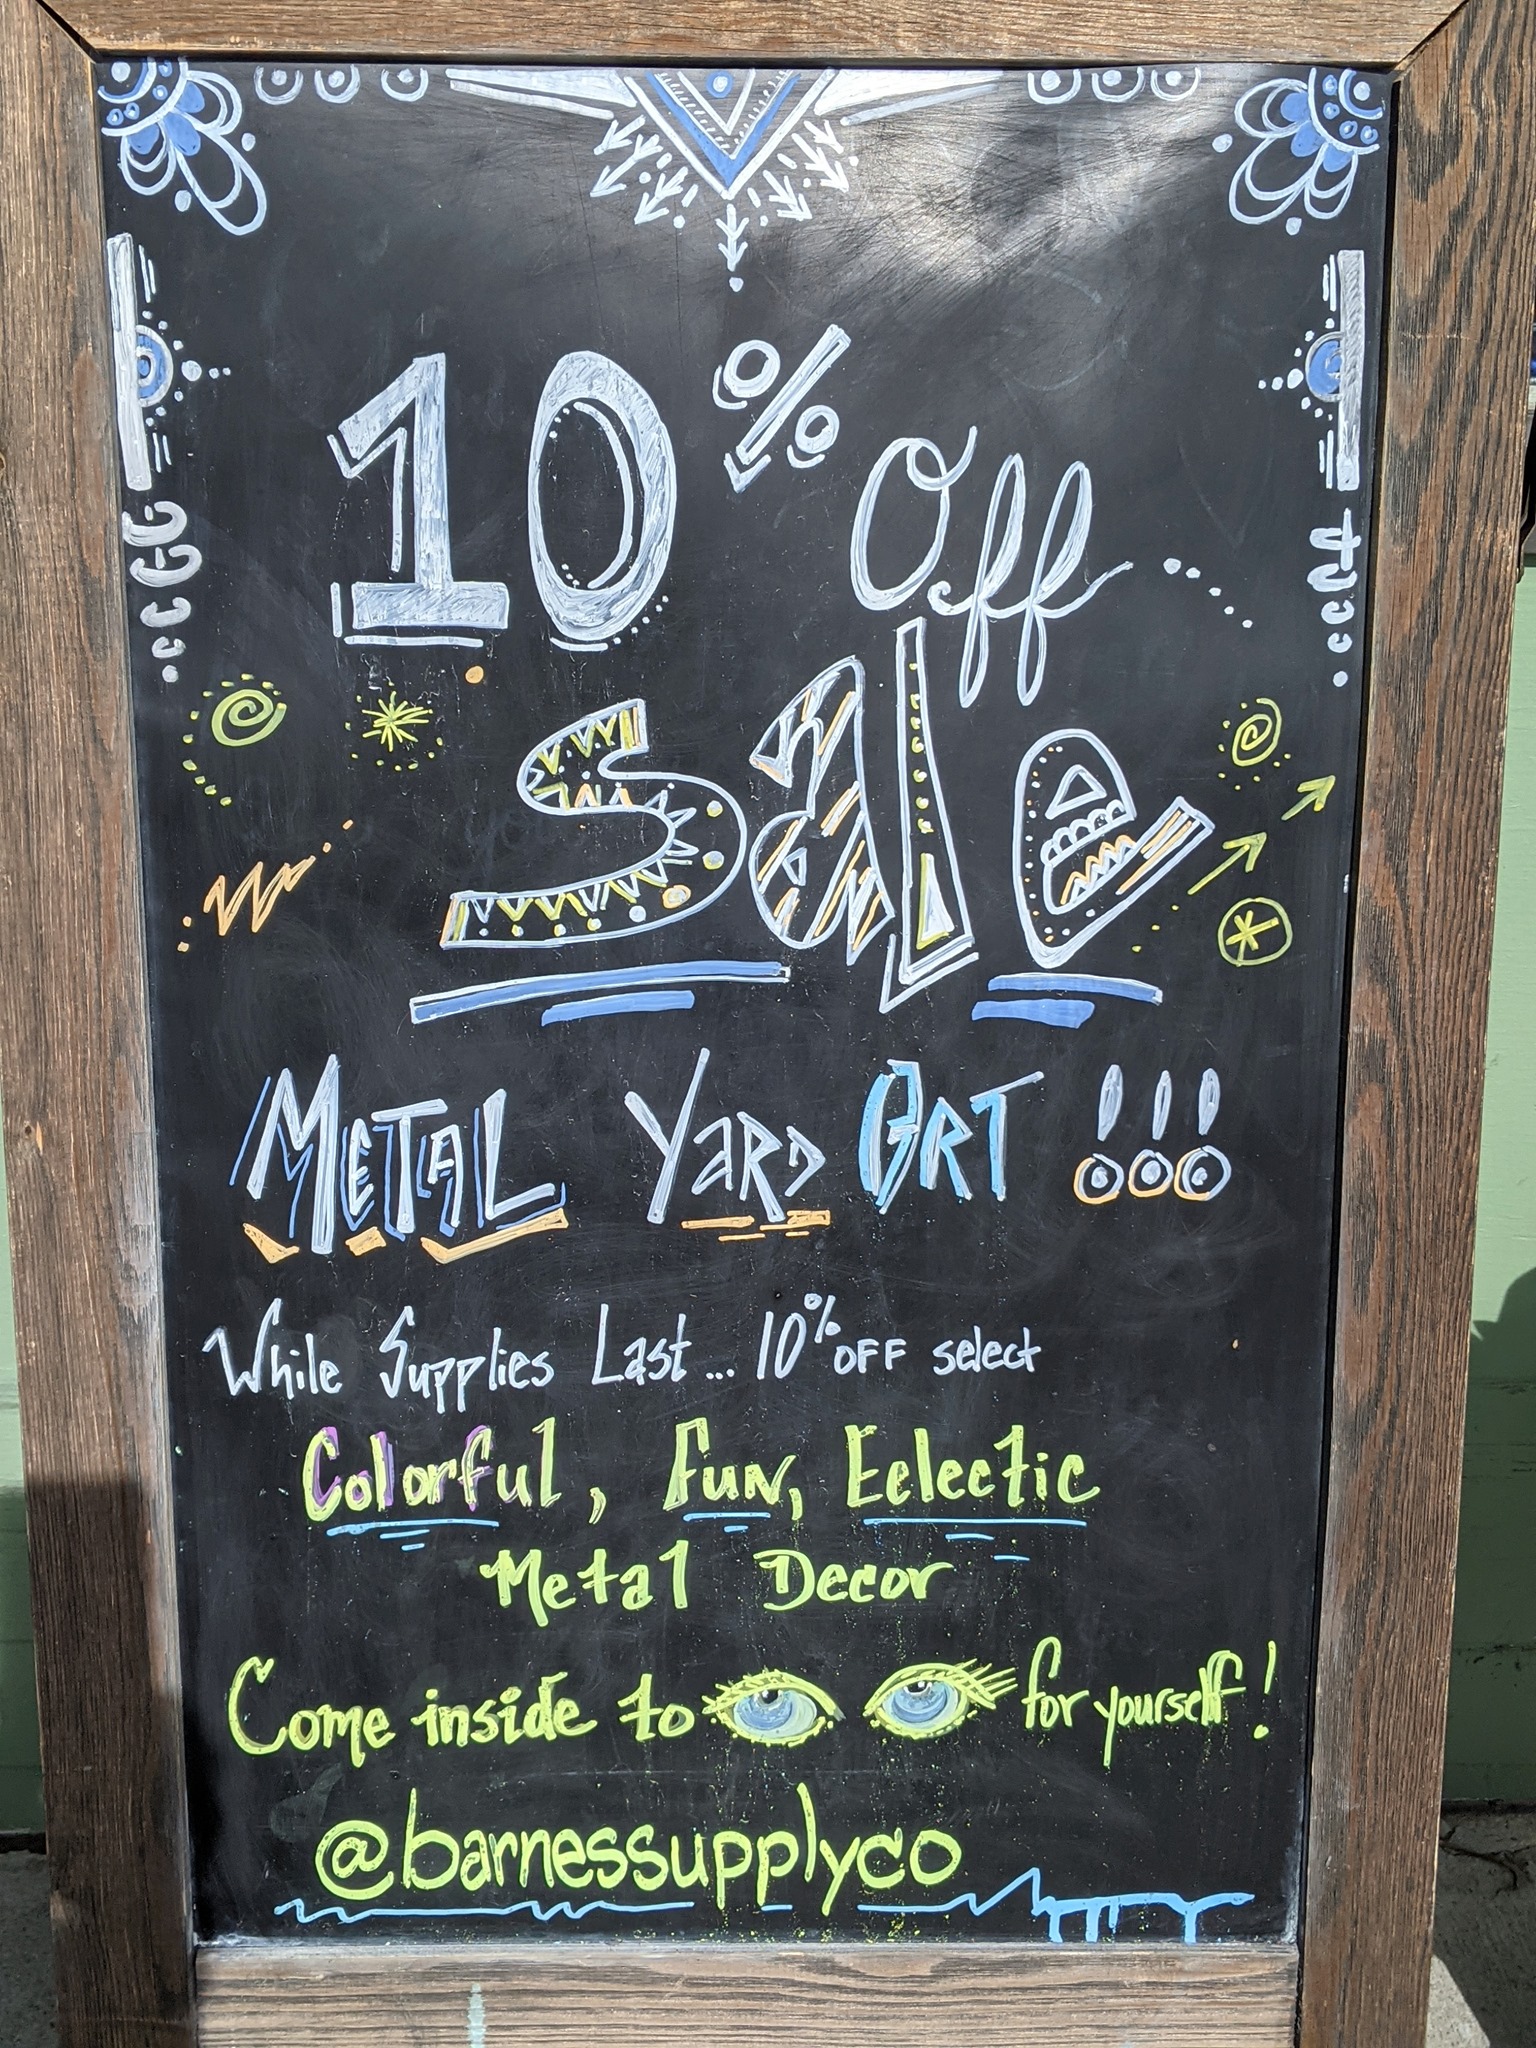 10% Off
Sale
METAL YARD ART !!!
While Supplies Last... 10% OFF select
Colorful, Fun, Eclectic
Metal Decor
Come inside to for yourself!
@barnessupplyco